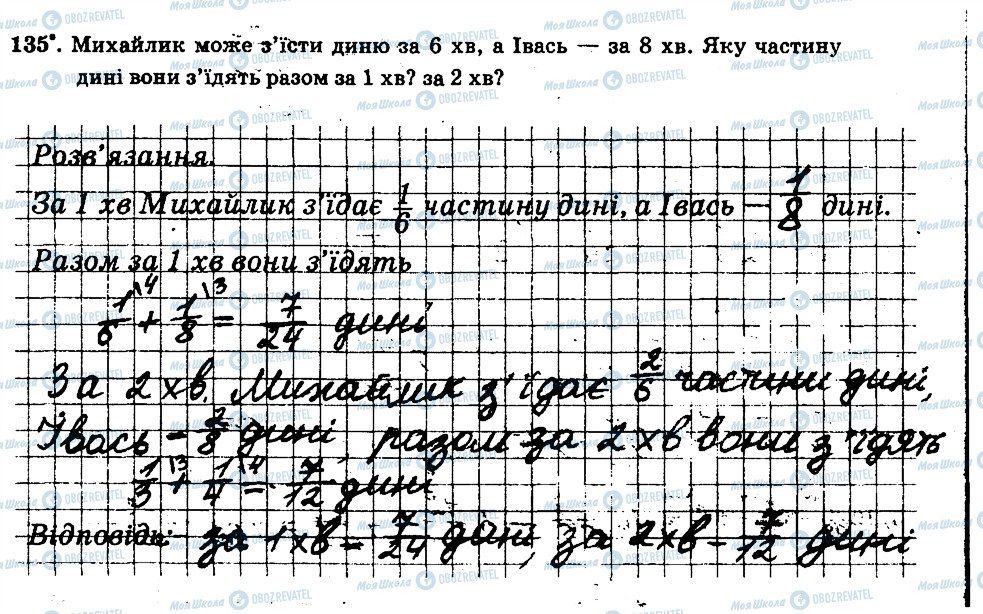 135°. Михайлик може з'їсти диню за 6 хв, а Івась — за 8 хв. Яку частину
дині вони з'їдять разом за 1 хв? за 2 хв?
Розв'язання.
За 1 хв Михайлик з'їдає 1/6 частину дині, а Івась — 1/8 дині.
Разом за 1 хв вони з'їдять
1/6 \4 + 1/8 \3 = 7/24 дині
За 2 хв. Михайлик з'їдає 2/6 частини дині,
Івась - 2/8 дині, разом за 2 хв вони з'їдять
1/3 \3 + 1/4 \4 = 7/12 дині
Відповідь: за 1 хв – 7/24 дині, за 2 хв – 7/12 дині
Моя Школа OBOZREVATEL